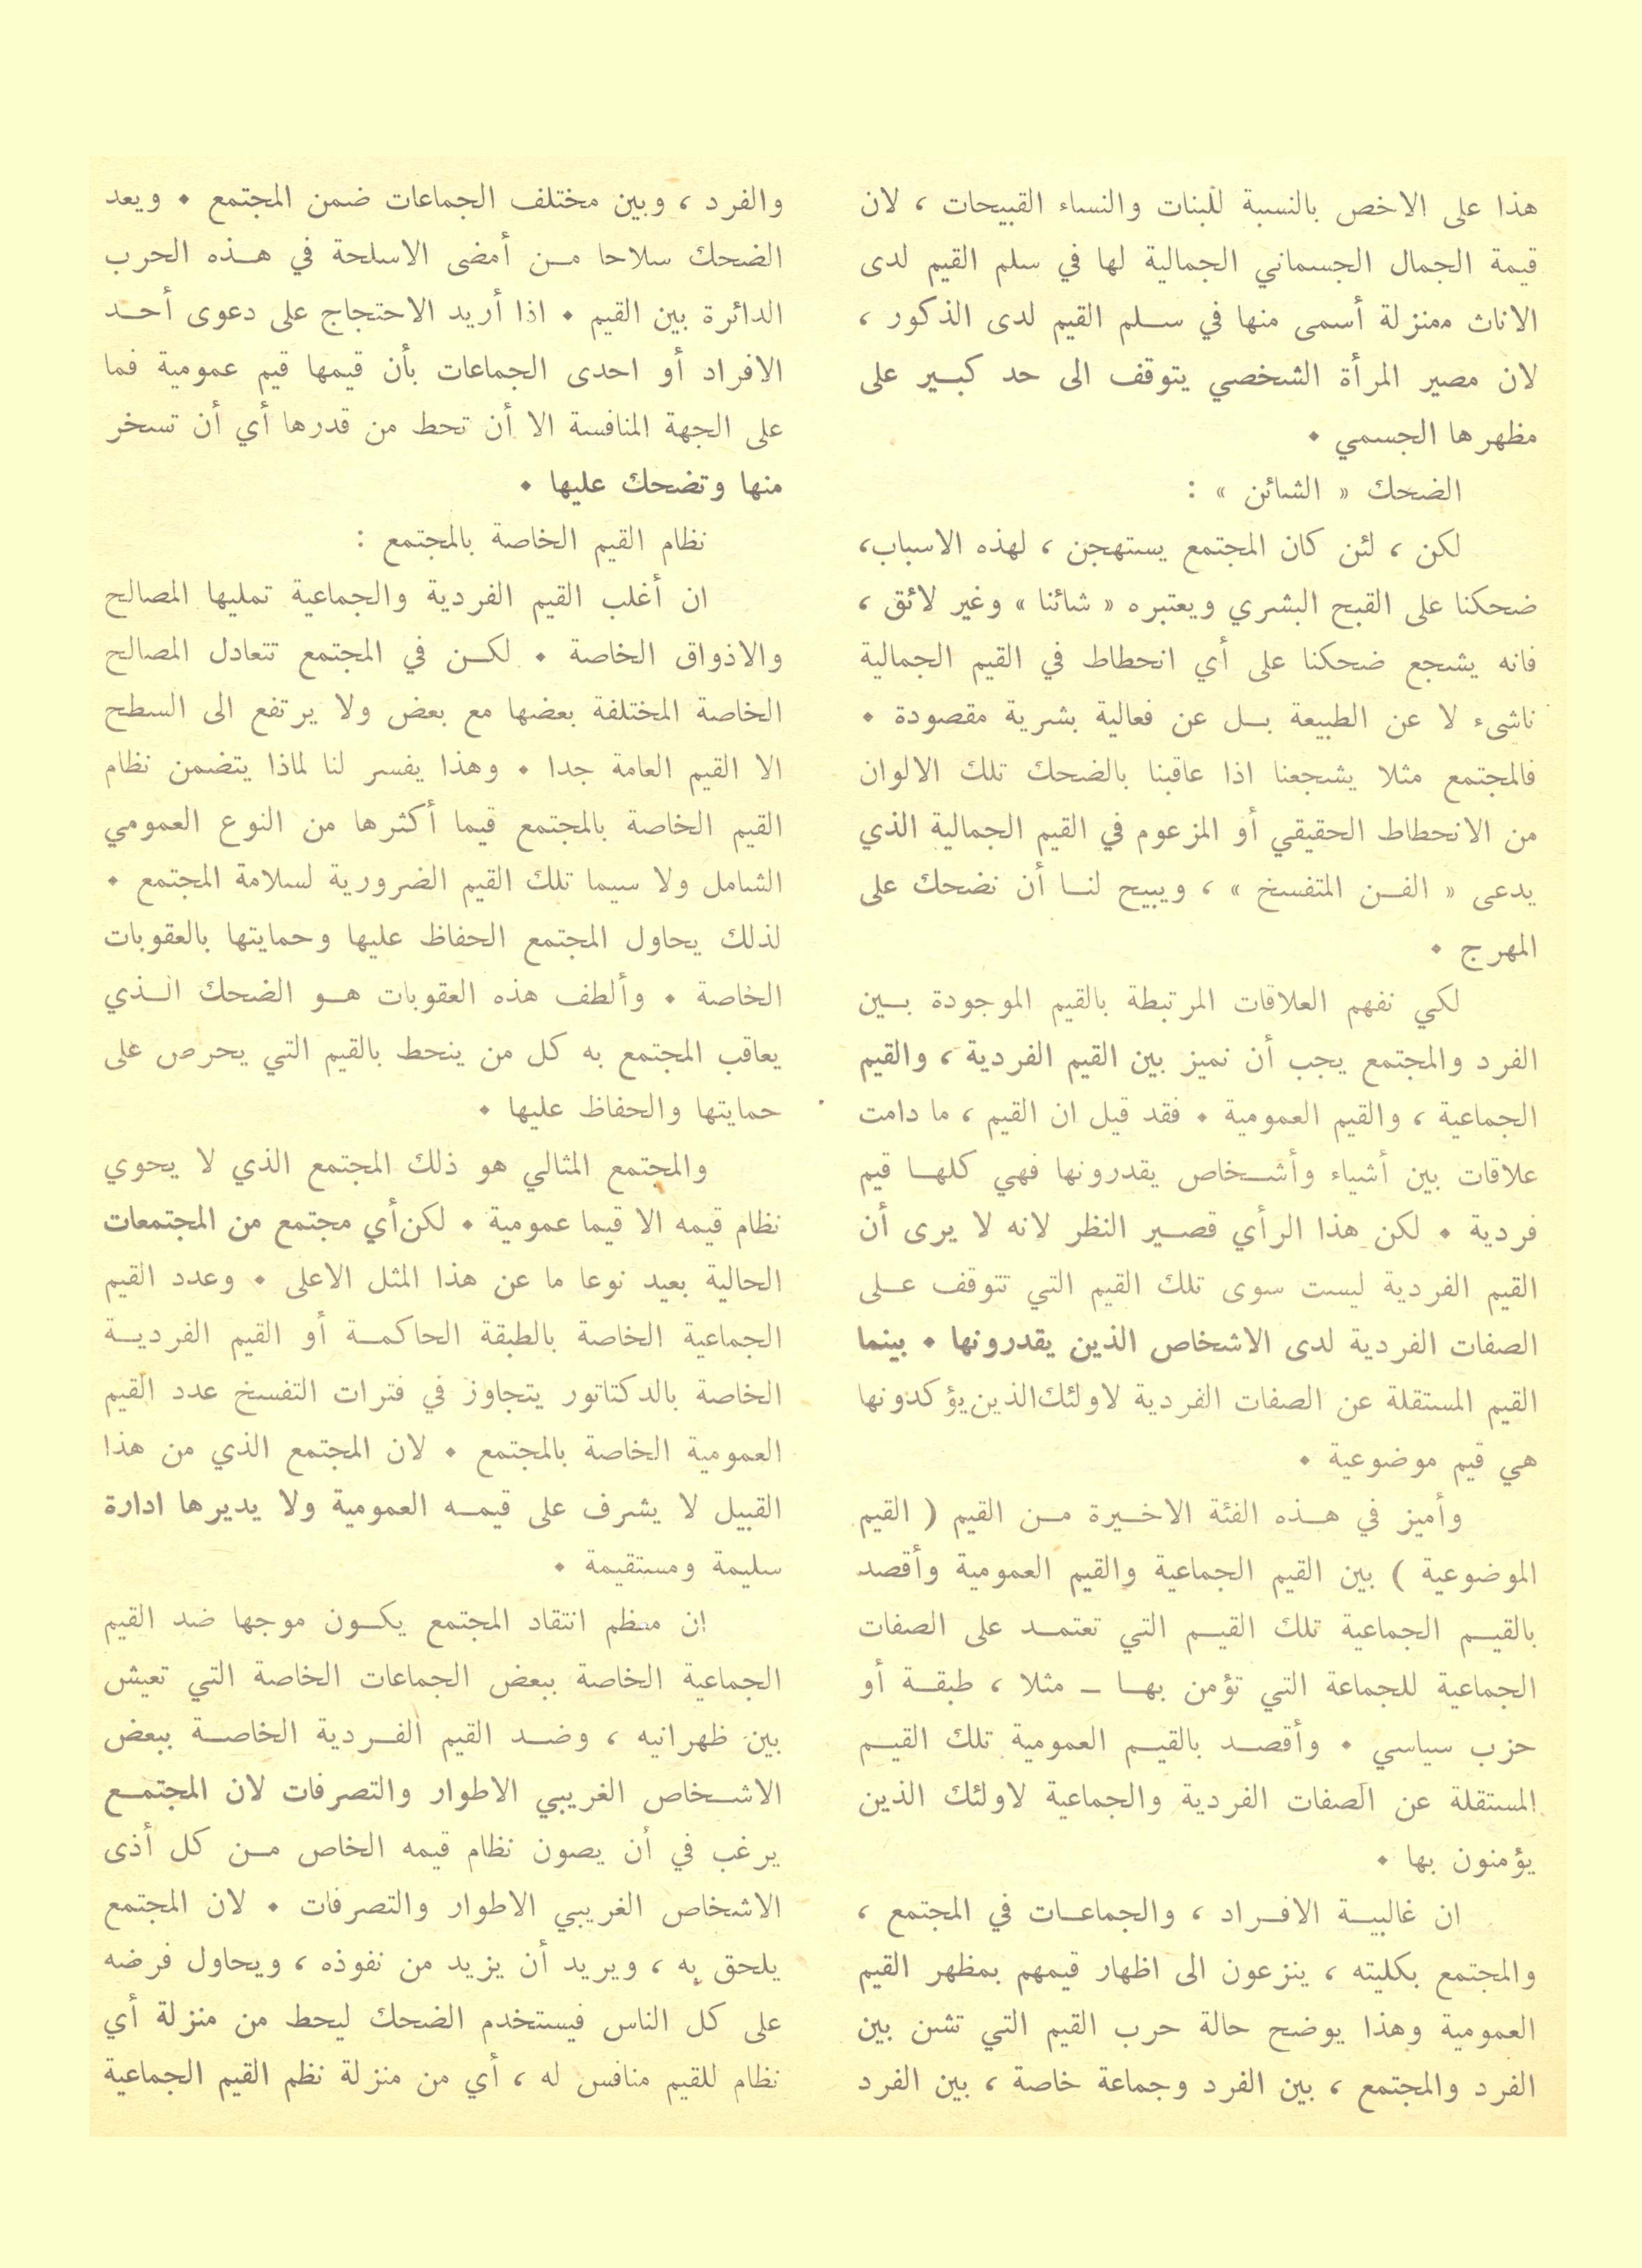 هذا على الاخص بالنسبة للبنات والنساء القبيحات ، لان
قيمة الجمال الجسماني الجمالية لها في سلم القيم لدى
الاناث ممنزلة أسمى منها في سلم القيم لدى الذكور ،
لان مصير المرأة الشخصي يتوقف الى حد كبير على
مظهرها الجسمي •
الضحك « الشائن » :
لكن ، لئن كان المجتمع يستهجن ، لهذه الاسباب،
ضحكنا على القبح البشري ويعتبره « شائنا » وغير لائق ،
فانه يشجع ضحكنا على أي انحطاط في القيم الجمالية
ناشىء لا عن الطبيعة بل عن فعالية بشرية مقصودة •
فالمجتمع مثلا يشجعنا اذا عاقبنا بالضحك تلك الالوان
من الانحطاط الحقيقي أو المزعوم في القيم الجمالية الذي
يدعى « الفن المتفسخ » ، ويبيح لنا أن نضحك على
المهرج •
لكي نفهم العلاقات المرتبطة بالقيم الموجودة بين
الفرد والمجتمع يجب أن نميز بين القيم الفردية ، والقيم
الجماعية ، والقيم العمومية • فقد قيل ان القيم ، ما دامت
علاقات بين أشياء وأشخاص يقدرونها فهي كلها قيم
فردية • لكن هذا الرأي قصير النظر لانه لا يرى أن
القيم الفردية ليست سوى تلك القيم التي تتوقف على
الصفات الفردية لدى الاشخاص الذين يقدرونها • بينما
القيم المستقلة عن الصفات الفردية لاولئك الذين يؤكدونها
هي قيم موضوعية •
وأميز في هذه الفئة الاخيرة من القيم ( القيم
الموضوعية ) بين القيم الجماعية والقيم العمومية وأقصد
بالقيم الجماعية تلك القيم التي تعتمد على الصفات
الجماعية للجماعة التي تؤمن بها - مثلا ، طبقة أو
حزب سياسي • وأقصد بالقيم العمومية تلك القيم
المستقلة عن الصفات الفردية والجماعية لاولئك الذين
يؤمنون بها •
ان غالبية الافراد ، والجماعات في المجتمع ،
والمجتمع بكليته ، ينزعون الى اظهار قيمهم بمظهر القيم
العمومية وهذا يوضح حالة حرب القيم التي تشن بين
الفرد والمجتمع ، بين الفرد وجماعة خاصة ، بين الفرد
والفرد ، وبين مختلف الجماعات ضمن المجتمع • ويعد
الضحك سلاحا من أمضى الاسلحة في هذه الحرب
الدائرة بين القيم • اذا أريد الاحتجاج على دعوى أحد
الافراد أو احدى الجماعات بأن قيمها قيم عمومية فما
على الجهة المنافسة الا أن تحط من قدرها أي أن تسخر
منها وتضحك عليها •
نظام القيم الخاصة بالمجتمع :
ان أغلب القيم الفردية والجماعية تمليها المصالح
والاذواق الخاصة • لكن في المجتمع تتعادل المصالح
الخاصة المختلفة بعضها مع بعض ولا يرتفع الى السطح
الا القيم العامة جدا • وهذا يفسر لنا لماذا يتضمن نظام
القيم الخاصة بالمجتمع قيما أكثرها من النوع العمومي
الشامل ولا سيما تلك القيم الضرورية لسلامة المجتمع •
لذلك يحاول المجتمع الحفاظ عليها وحمايتها بالعقوبات
الخاصة • وألطف هذه العقوبات هو الضحك الذي
يعاقب المجتمع به كل من ينحط بالقيم التي يحرص على
حمايتها والحفاظ عليها •
والمجتمع المثالي هو ذلك المجتمع الذي لا يحوي
نظام قيمه الا قيما عمومية • لكن أي مجتمع من المجتمعات
الحالية بعيد نوعا ما عن هذا المثل الاعلى • وعدد القيم
الجماعية الخاصة بالطبقة الحاكمة أو القيم الفردية
الخاصة بالدكتاتور يتجاوز في فترات التفسخ عدد القيم
العمومية الخاصة بالمجتمع • لان المجتمع الذي من هذا
القبيل لا يشرف على قيمه العمومية ولا يديرها ادارة
سليمة ومستقيمة •
ان معظم انتقاد المجتمع يكون موجها ضد القيم
الجماعية الخاصة ببعض الجماعات الخاصة التي تعيش
بين ظهرانيه ، وضد القيم الفردية الخاصة ببعض
الاشخاص الغريبي الاطوار والتصرفات لان المجتمع
يرغب في أن يصون نظام قيمه الخاص من كل أذى
الاشخاص الغريبي الاطوار والتصرفات • لان المجتمع
يلحق به ، ويريد أن يزيد من نفوذه ، ويحاول فرضه
على كل الناس فيستخدم الضحك ليحط من منزلة أي
نظام للقيم منافس له ، أي من منزلة نظم القيم الجماعية